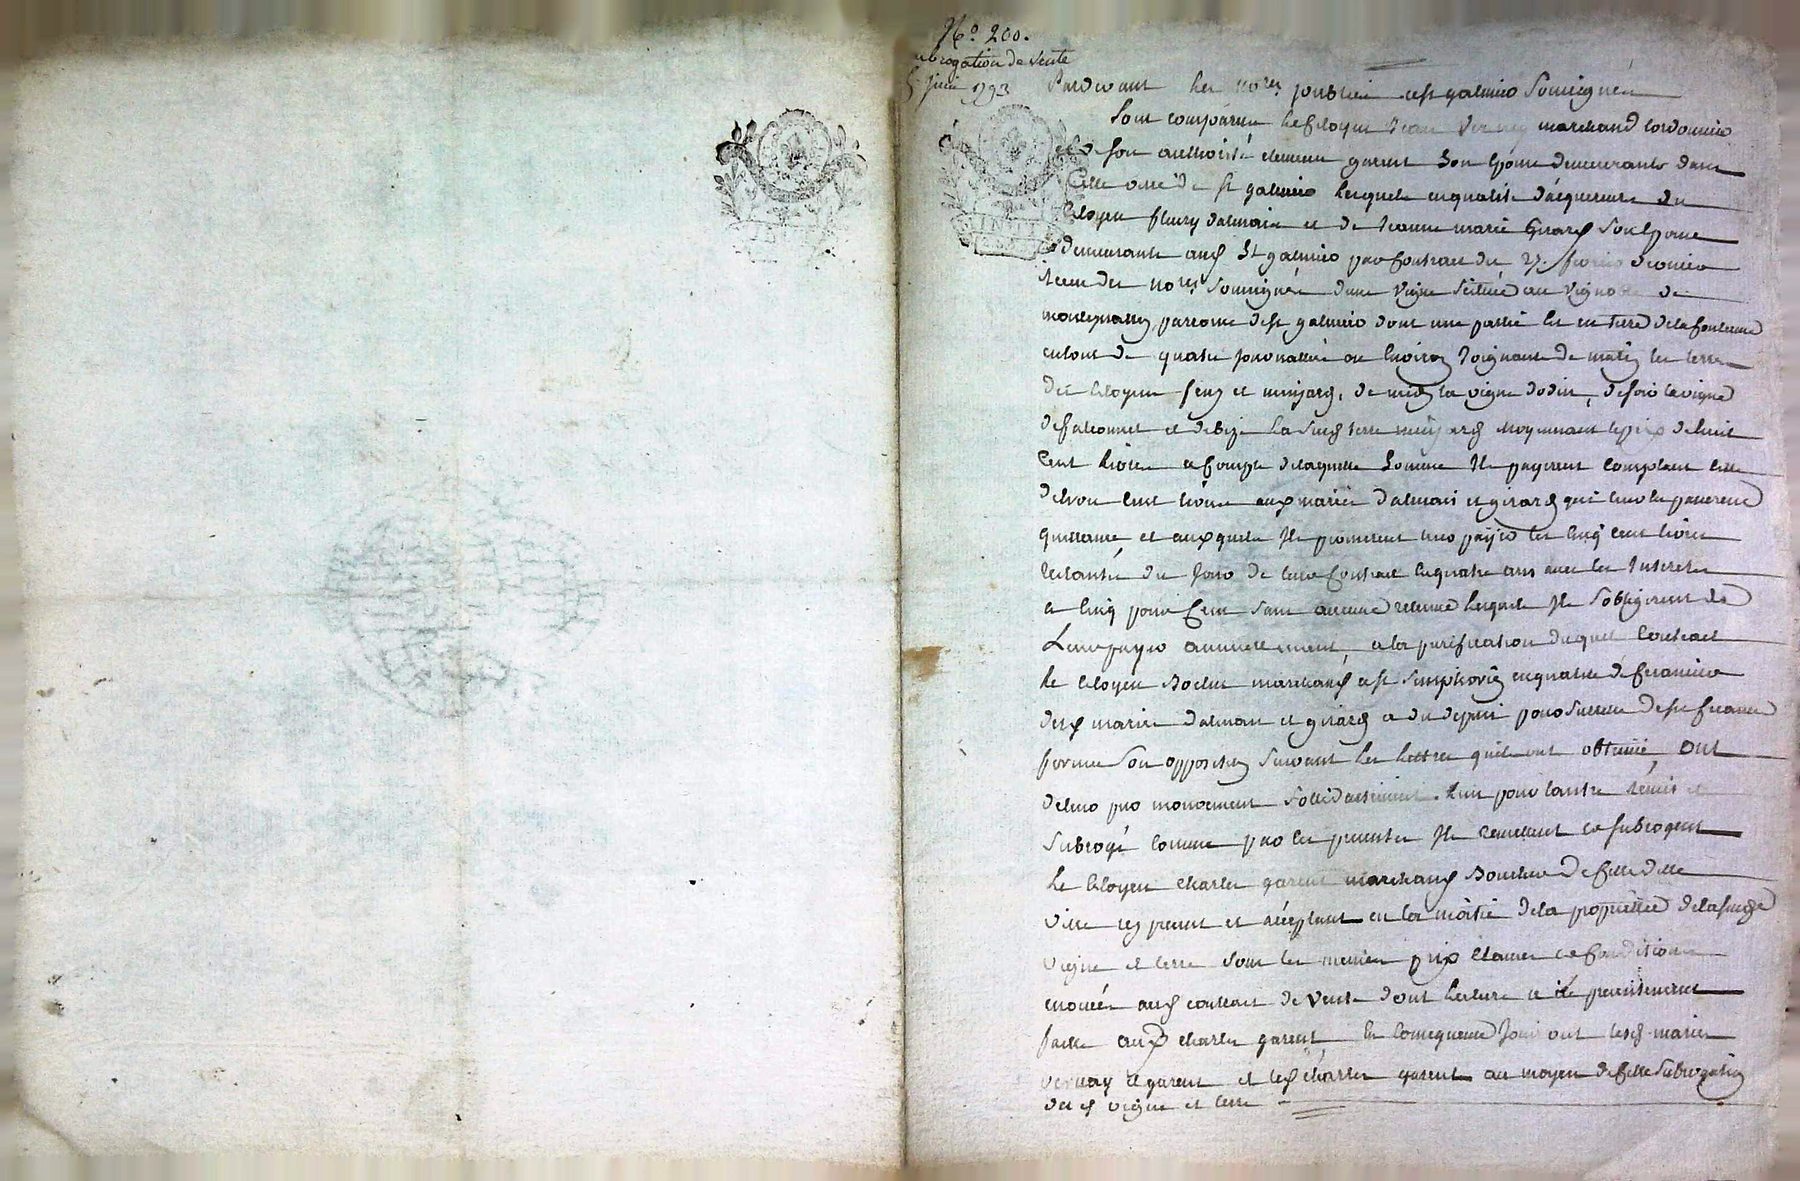 N.º 200.
subrogation de vente
5 Juin 1793
Pardevant les nores publics a st galmier Soussignés
Sont comparus le Citoyen Jean Vernay marchand Cordonnier
et de son authorité etiennne garent Son Epouse demeurants dans
Cette ville de st galmier lesquels en qualité d'acquereurs du
Citoyen fleury dalmais et de Jeanne marie Girard Son Epouse
demeurants aud St galmier par Contract du 27. fevrier dernier
recu des nores Soussignés d'une Vigne Scituée au Vignoble de
paroisse de st galmier dont une partie est en terre de la Contenue
en tout de quatre journallées ou Environ Joignant de matin les terres
des Citoyens et minjard, de midy la vigne dodin, de soir la vigne
de falconnet et de bize la Susd terre minjard Moyennant le prix de huit
Cent livres a Compte de laquelle Somme Ils payerent Comptant Celle
de trois Cent livres aux mariés Dalmais et girard qui leur en passerent
quittance et auxquels Ils promirent leur payer les Cinq Cent livres
restantes du jour de leur Contract en quatre ans avec les Interets
a Cinq pour Cent Sans aucune retenue lesquels Ils S'obligerent de
Leur payer annuellement, a la purification duquel Contract
le Citoyen marchand a st Simphorien en qualité de Creancier
desd mariés dalmais et girard a du depuis pour Surete de sa Creance
formé Son opposition Suivant les lettres quils ont obtenüe, ont
de leur pur mouvement Sollidairement l'un pour l'autre remis et
Subrogé comme par les presentes Ils remettent et Subrogent
le Citoyen Charles garent marchand Boucher de Cette ditte
Ville icy present et acceptant en la moitié de la proprietté de la susde
vigne et terre sous les mêmes prix Clauses et Conditions
enoncés aud contract de Vente dont lecture a été presentement
faitte aud Charles garent, En Consequence Jouiront lesd mariés
vernay et garent et led Charles garent au moyen de Cette Subrogation
desd vigne et terre